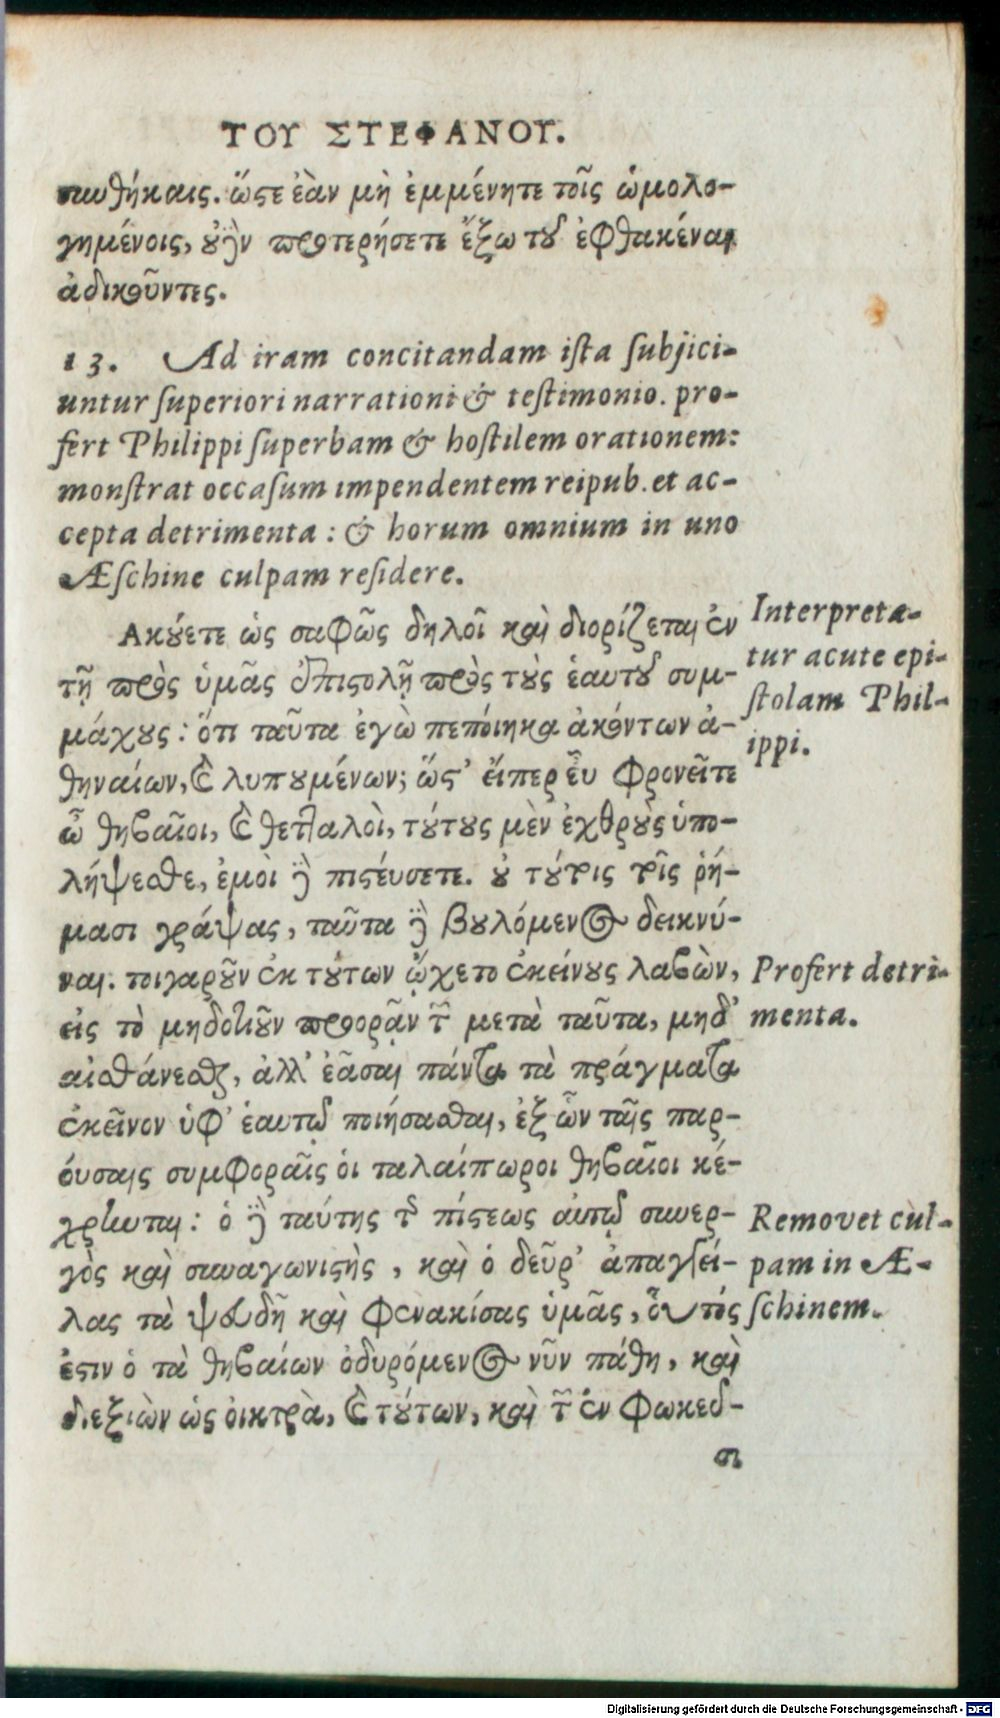 ΤΟΥ ΣΤΕΦΑΝΟΥ.
συνθήκαις. ὥστε ἐὰν μὴ ἐμμένητε τοῖς ὡμολο-
γημένοις, οὐδὲν προτερήσετε ἔξω τοῦ ἐφθακέναι
ἀδικοῦντες.
13. Ad iram concitandam ista subjici-
untur superiori narrationi & testimonio. pro-
fert Philippi superbam & hostilem orationem:
monstrat occasum impendentem reipub. et ac-
cepta detrimenta : & horum omnium in uno
Æschine culpam residere.
Ακούετε ὡς σαφῶς δηλοῖ καὶ διορίζεται ἐν
τῇ πρὸς ὑμᾶς ἐπιστολῇ πρὸς τοὺς ἑαυτοῦ συμ-
μάχους : ὅτι ταῦτα ἐγὼ πεποίηκα ἀκόντων ἀ-
θηναίων, καὶ λυπουμένων; ὥστ' εἴπερ εὖ φρονεῖτε
ὦ θηβαῖοι, καὶ θετταλοὶ, τούτους μὲν ἐχθροὺς ὑπο-
λήψεσθε, ἐμοὶ δὲ πιστεύσετε. οὐ τούτοις τοῖς ῥή-
μασι γράψας, ταῦτα δὲ βουλόμενος δεικνύ-
ναι. τοιγαροῦν ἐκ τούτων ᾤχετο ἐκείνους λαβὼν,
εἰς τὸ μηδοτιοῦν προορᾷν τῶν μετὰ ταῦτα, μηδ'
αἰσθάνεσθαι, ἀλλ' ἐᾶσαι πάντα τὰ πράγματα
ἐκεῖνον ὑφ' ἑαυτῷ ποιήσασθαι, ἐξ ὧν ταῖς παρ-
ούσαις συμφοραῖς οἱ ταλαίπωροι θηβαῖοι κέ-
χρηνται : ὁ δὲ ταύτης τῆς πίστεως αὐτῷ συνερ-
γὸς καὶ συναγωνιστὴς, καὶ ὁ δεῦρ' ἀπαγγεί-
λας τὰ ψευδῆ καὶ φενακίσας ὑμᾶς, οὗτός
ἐστιν ὁ τὰ θηβαίων ὀδυρόμενος νῦν πάθη, καὶ
διεξιὼν ὡς οἰκτρὰ, καὶ τούτων, καὶ τῶν ἐν φωκεῦ-
σι
Interpreta-
tur acute epi-
stolam Phil-
ippi.
Profert detri-
menta.
Removet cul-
pam in Æ-
schinem.
Digitalisierung gefördert durch die Deutsche Forschungsgemeinschaft - DFG